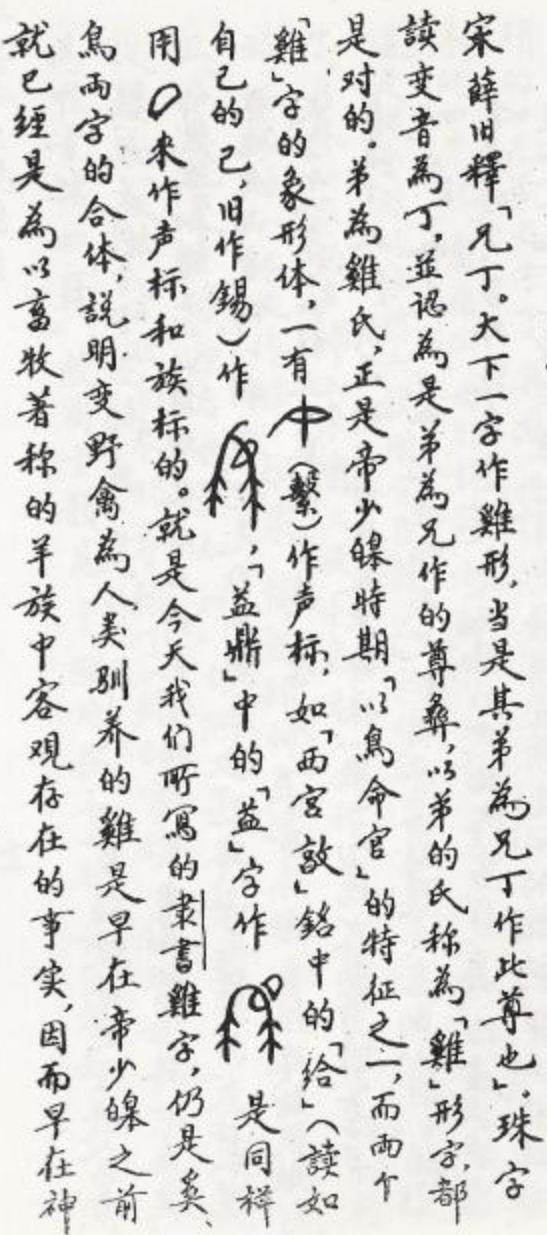 宋薛旧釋「兄丁。大下一字作雞形,当是其弟為兄丁作此尊也」。珠字
讀变音為丁,並認為是弟為兄作的尊彝,以弟的氏称為「雞」形字,都
是对的。弟為雞氏,正是帝少皞時期「以鳥命官」的特征之一,而兩个
「雞」字的象形体,一有(繫)作声标,如「西宮敦」銘中的「给」(讀如
自己的己,旧作錫)作,「益鼎」中的「益」字作是同样
用来作声标和族标的。就是今天我们所寫的隶書雞字,仍是奚、
鳥兩字的合体,説明变野禽為人类馴养的雞是早在帝少皞之前
就已經是為以畜牧著称的羊族中客观存在的事实,因而早在神